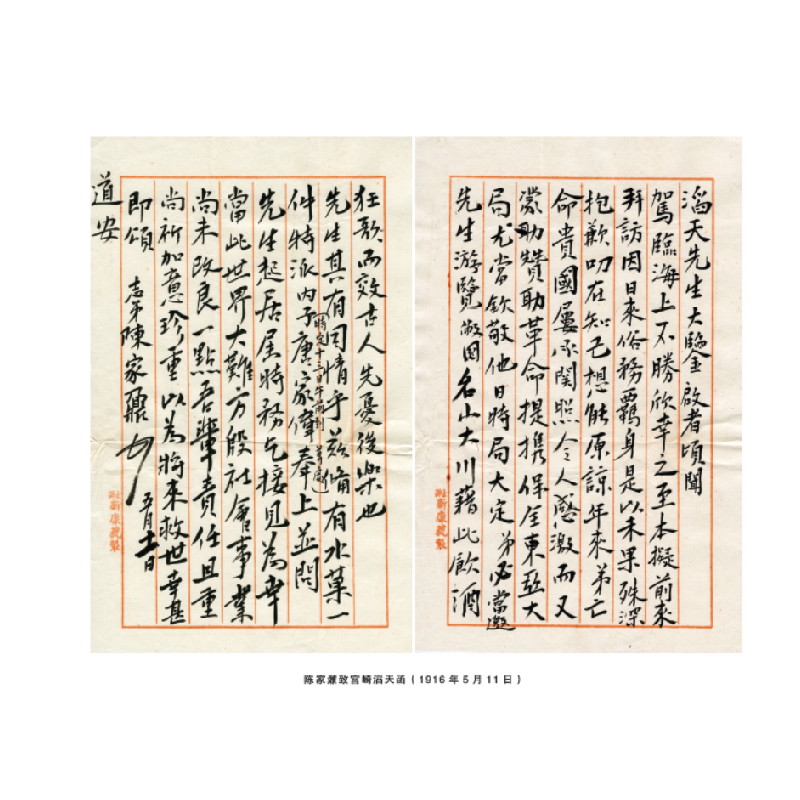 滔天先生大鑒啟者頃聞
駕臨海上不勝欣幸之至本擬前來
拜訪因日來俗務羈身是以未果殊深
抱歉叨在知己想能原諒年來弟亡
命貴國屢承関照令人感激而又
蒙助贊助革命提携保全東亞大
局尤當欽敬他日時局大定弟必當邀
先生游覽敝國名山大川藉此飲酒
狂歌而效古人先憂後樂也
先生其有同情乎茲備有水菓一
件特派內子唐家偉奉上並問
時安十二日午
先生起居屆時務乞接見為幸
當此世界大難方殷社會事業
尚未改良一點吾輩責任且重
尚祈加意珍重以為將來救世幸甚
即頌
道安
弟陳家鼐
五月十一日
陈家鼐致宫崎滔天函（1916年5月11日）